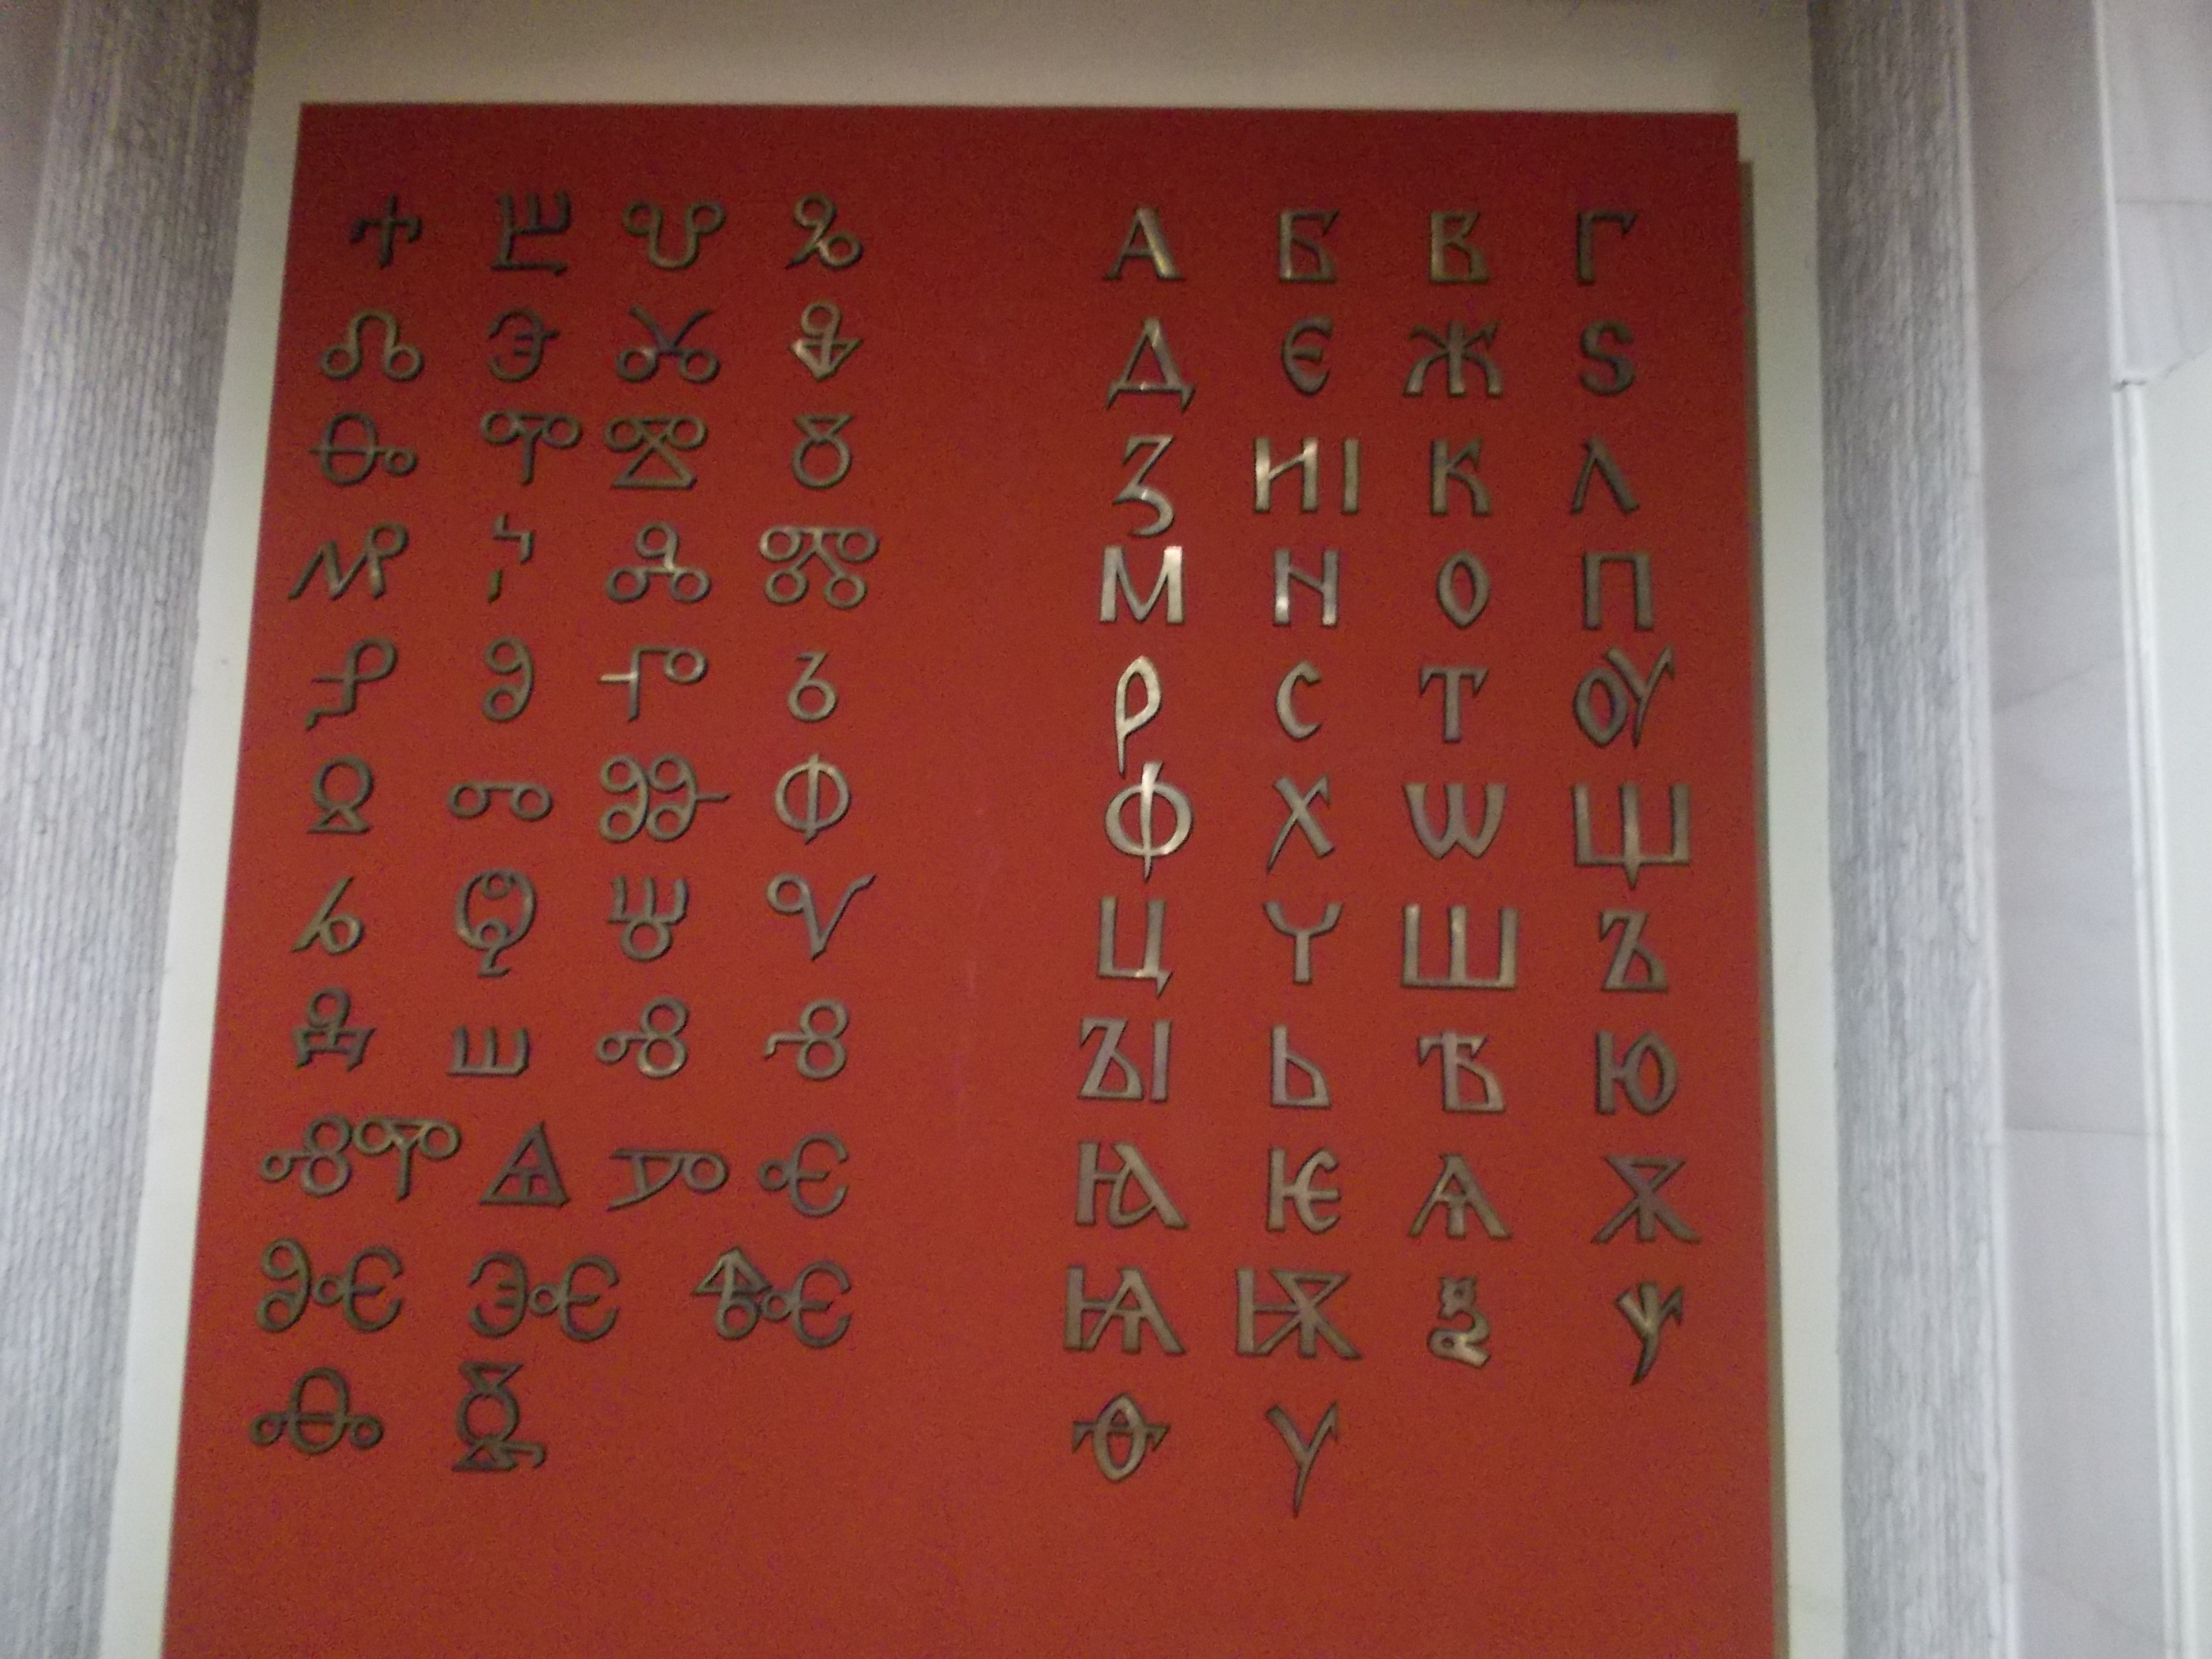 Ⰰ Ⰱ Ⰲ Ⰳ
Ⰴ Ⰵ Ⰶ Ⰷ
Ⰸ Ⰺ Ⰹ Ⰻ
Ⰼ Ⰽ Ⰾ Ⰿ
Ⱀ Ⱁ Ⱂ Ⱃ
Ⱄ Ⱅ Ⱆ Ⱇ
Ⱈ Ⱉ Ⱋ Ⱌ
Ⱍ Ⱎ Ⱏ Ⱐ
ⰟⰊ Ⱑ Ⱓ Ⱔ
Ⱘ Ⱗ Ⱙ
Ⱚ Ⱛ
А Б В Г
Д Є Ж Ѕ
З И І К Л
М N О П
Р С Т ОУ
Ф Х Ѡ Щ
Ц Ч Ш Ъ
ЪІ Ь Ѣ Ю
Ꙗ Ѥ Ѧ Ѫ
Ѩ Ѭ Ѯ Ѱ
Ѳ Ѵ